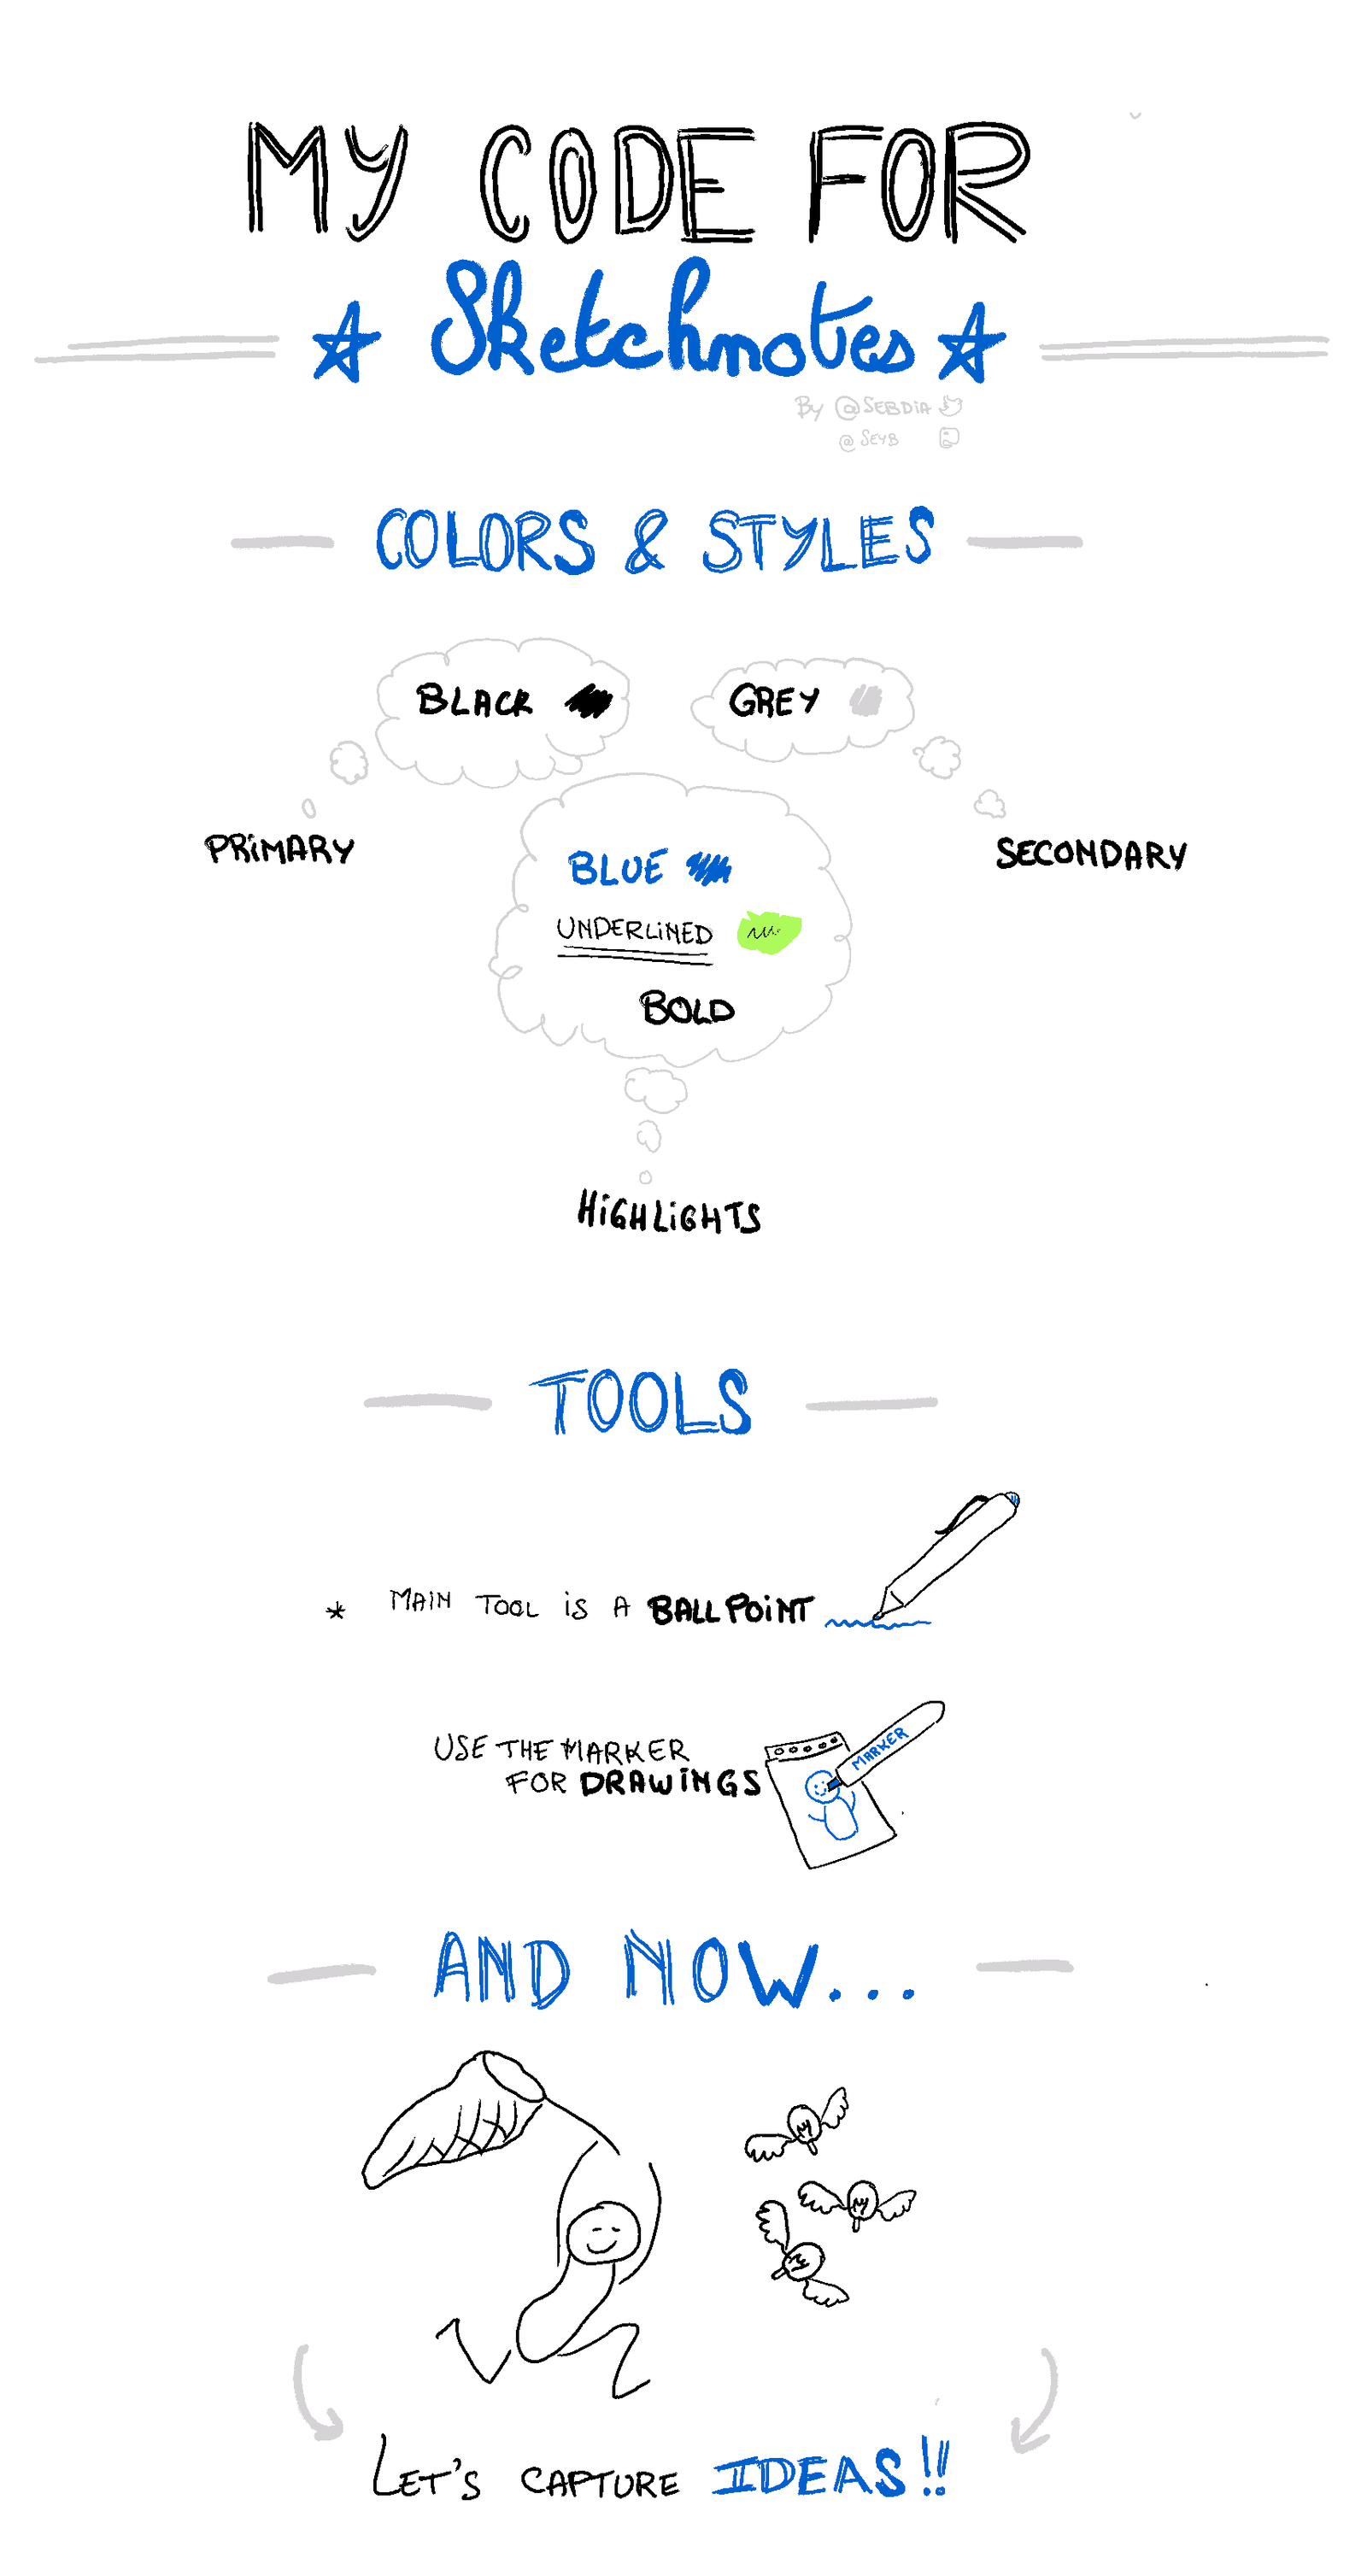 MY CODE FOR
Sketchnotes
By @SEBDiA
@SEYB
COLORS & STYLES
BLACK
GREY
PRiMARY
SECONDARY
BLUE
UNDERLiNED
BOLD
HiGHLiGHTS
TOOLS
* MAiN TOOL iS A BALLPOiNT
USE THE MARKER
FOR DRAWiNGS
MARKER
AND NOW...
LET'S CAPTURE IDEAS!!